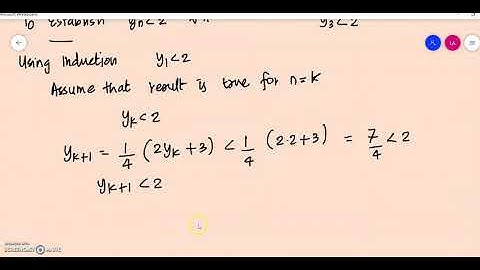 To establish yn<2 y3<2
Using Induction y1<2
Assume that result is true for n=k
yk<2
yk+1 = 1/4 (2yk+3) < 1/4 (2·2+3) = 7/4 <2
yk+1 <2
SCREENCAST-O-MATIC